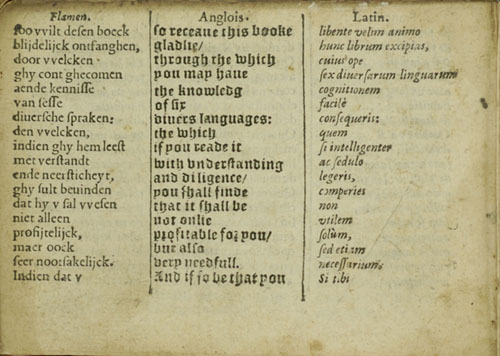 Flamen.
soo vvilt desen boeck
blijdelijck ontfanghen,
door vvelcken
ghy cont ghecomen
aende kennisse
van sesse
diuersche spraken:
den vvelcken,
indien ghy hem leest
met verstandt
ende neersticheyt,
ghy sult beuinden
dat hy v sal vvesen
niet alleen
profijtelijck,
maer oock
seer nootsakelijck.
Indien dat v
Anglois.
so receaue this booke
gladlie/
through the which
you may haue
the knowledg
of six
diuers languages:
the which
if you reade it
with vnderstanding
and diligence/
you shall finde
that it shall be
not onlie
profitable for you/
but also
very needfull.
And if so be that you
Latin.
libente velim animo
hunc librum excipias,
cuius ope
sex diuersarum linguarum
cognitionem
facilè
consequeris:
quem
si intelligenter
ac sedulo
legeris,
comperies
non
vtilem
solùm,
sed etiam
necessarium.
Si tibi